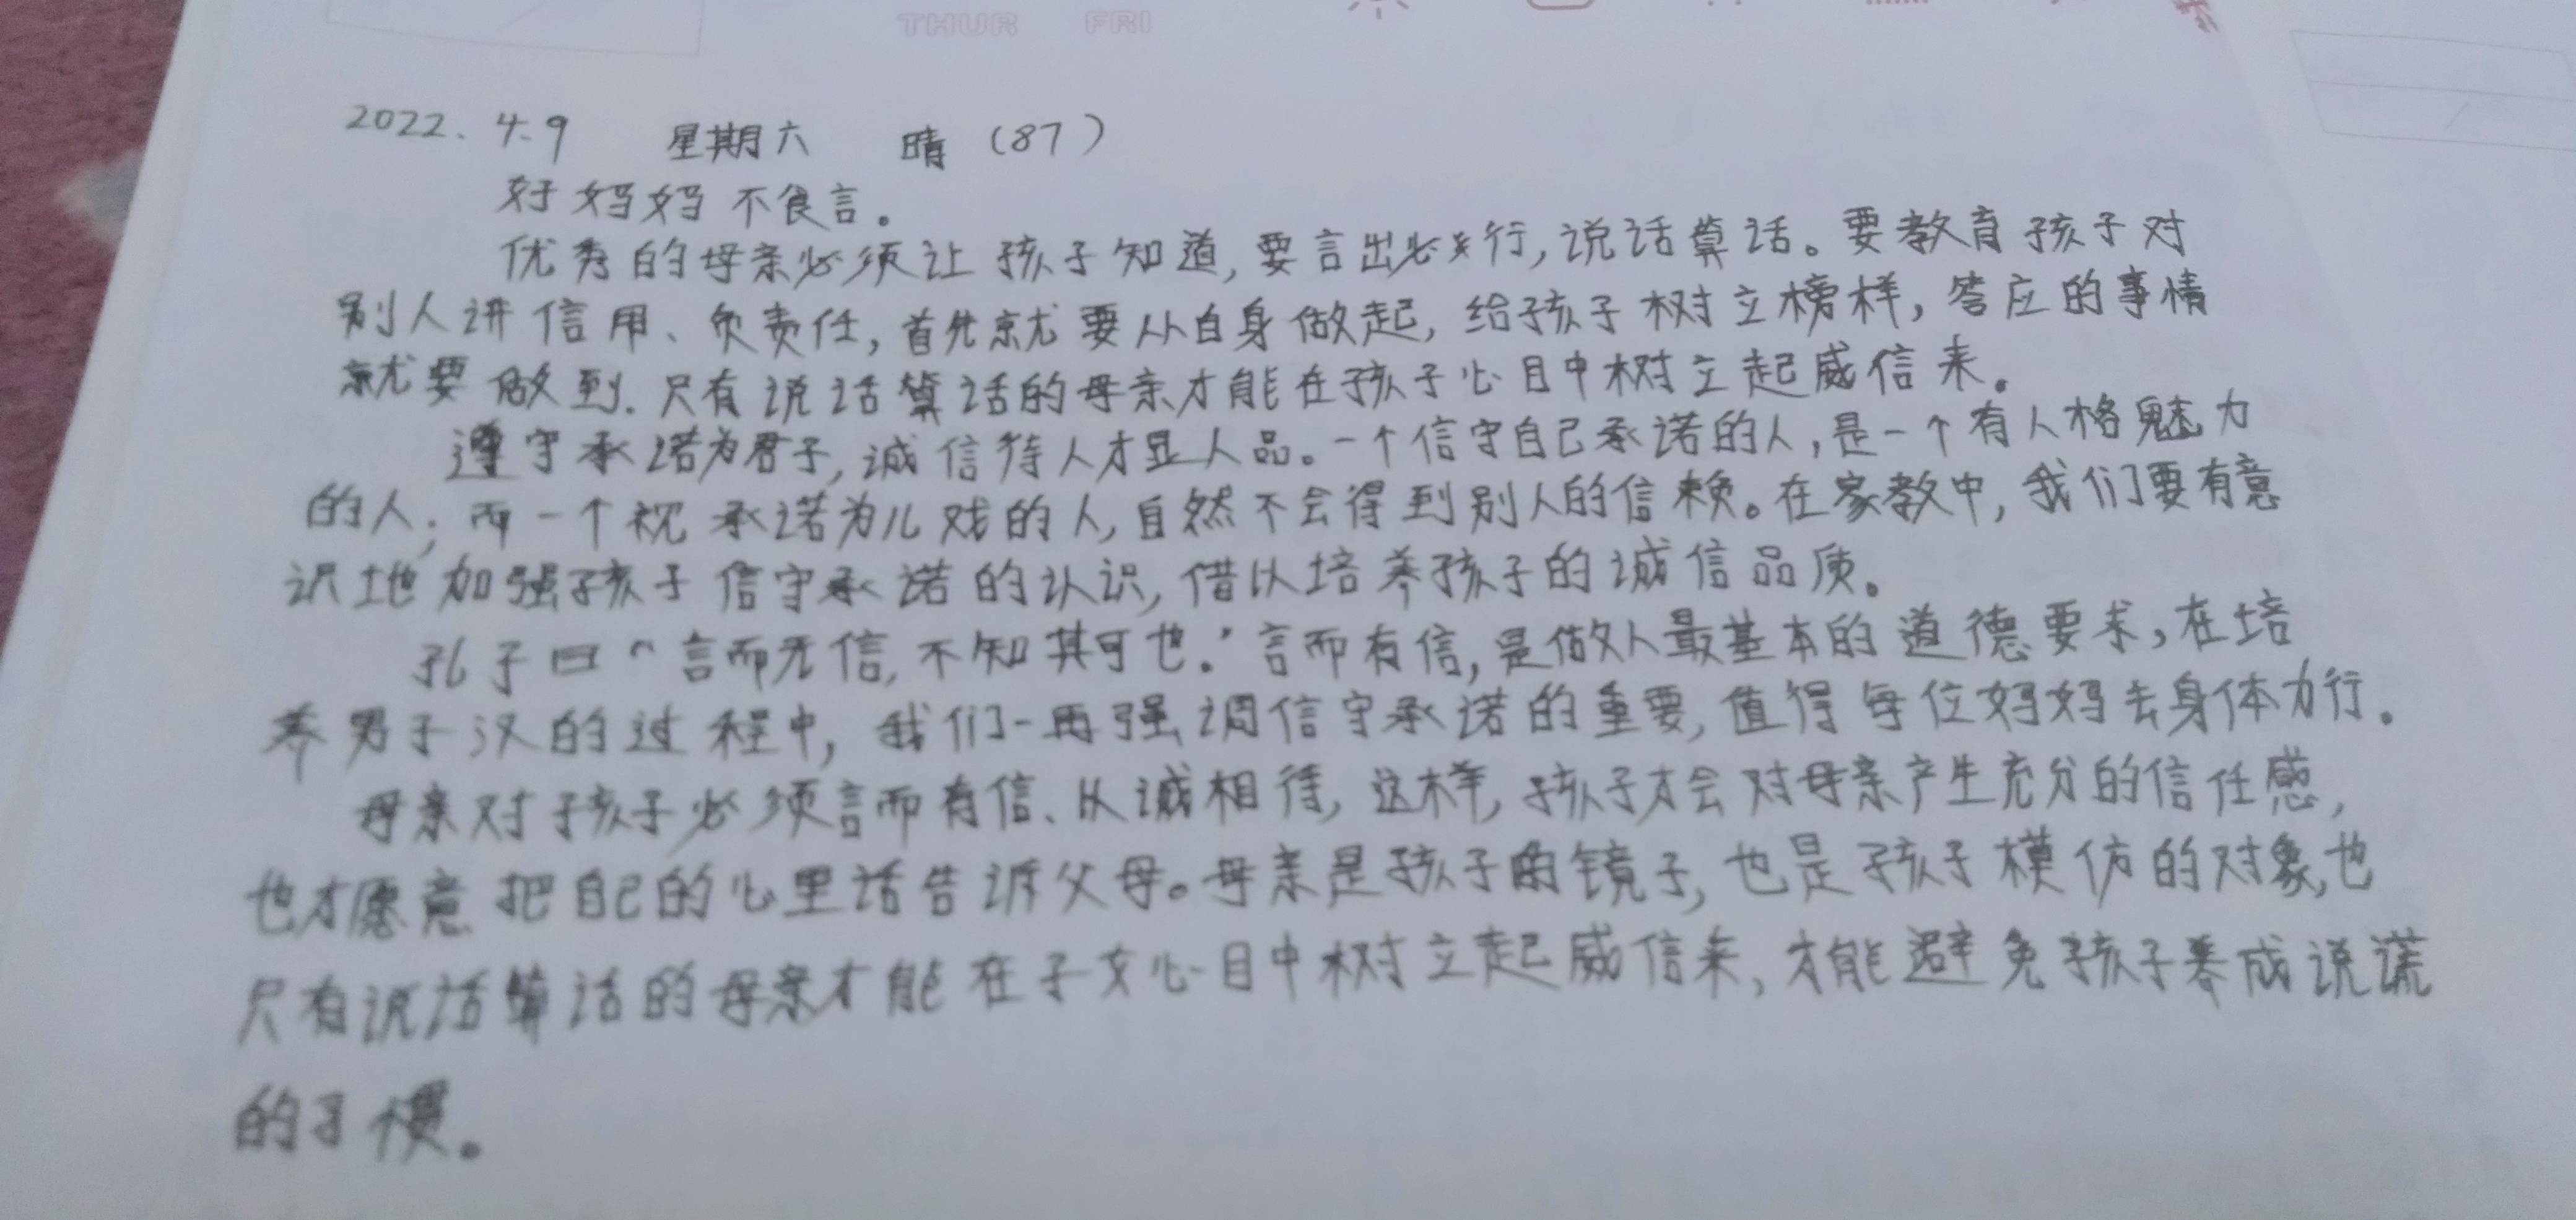 THUR FRI
2022.4.9 星期六 晴（87）
好妈妈不食言。
优秀的母亲必须让孩子知道,要言出必行,说话算话。要教育孩子对
别人讲信用、负责任,首先就要从自身做起,给孩子树立榜样,答应的事情
就要做到.只有说话算话的母亲才能在孩子心目中树立起威信来。
遵守承诺为君子,诚信待人才显人品。一个信守自己承诺的人,是一个有人格魅力
的人;而一个视承诺为儿戏的人,自然不会得到别人的信赖。在家教中,我们要有意
识地加强孩子信守承诺的认识,借以培养孩子的诚信品质。
孔子曰“言而无信,不知其可也.”言而有信,是做人最基本的道德要求,在培
养男子汉的过程中,我们一再强调信守承诺的重要,值得每位妈妈去身体力行.
母亲对于孩子必须言而有信、以诚相待,这样,孩子才会对母亲产生充分的信任感,
也才愿意把自己的心里话告诉父母。母亲是孩子的镜子,也是孩子模仿的对象,也
只有说话算话的母亲才能在子女心目中树立起威信来,才能避免孩子养成说谎
的习惯。